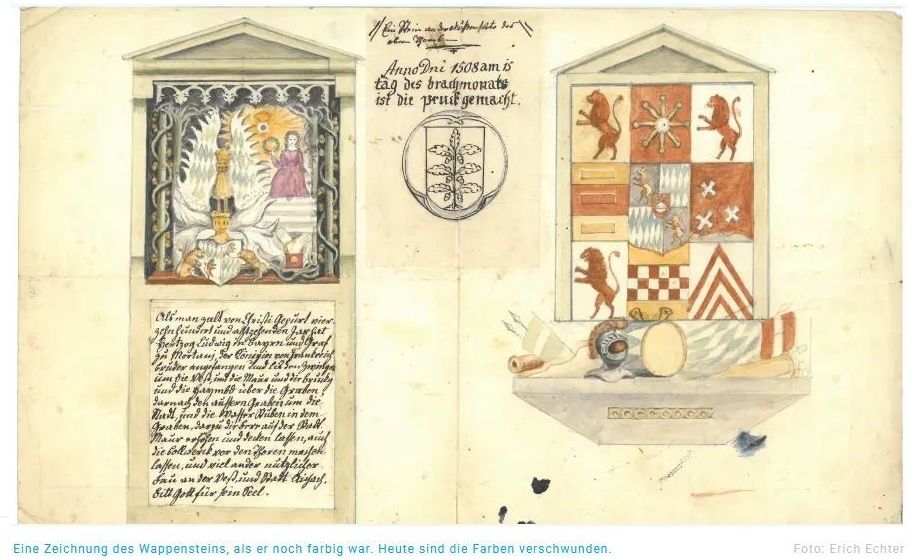 Ein Stein an der Außenseite des
obern
Anno Dni 1508 am is
tag des brachmonats
ist die pruck gemacht.
Als man zalt von Christi Gepurt vier
zehnhundert und achtzehenden Jar hat
Hertzog Ludwig in Bayrn und Graf
zu Mortani, der Königin von Frankreich
bruder angefangen und den Zwinger
um die Vest und die Maur und die
und die über die Graben,
darnach den äussern Graben um die
Stadt, und die Wasser Stuben in dem
Graben, darzu auf der Stadt
Maur erhöhen und decken lassen, auch
die bollwerck vor den Thoren machen
lassen, und viel ander nützlicher
bau an der Vest und Stadt Aichach.
Bitt Gott für sein Seel.
Eine Zeichnung des Wappensteins, als er noch farbig war. Heute sind die Farben verschwunden.
Foto: Erich Echter